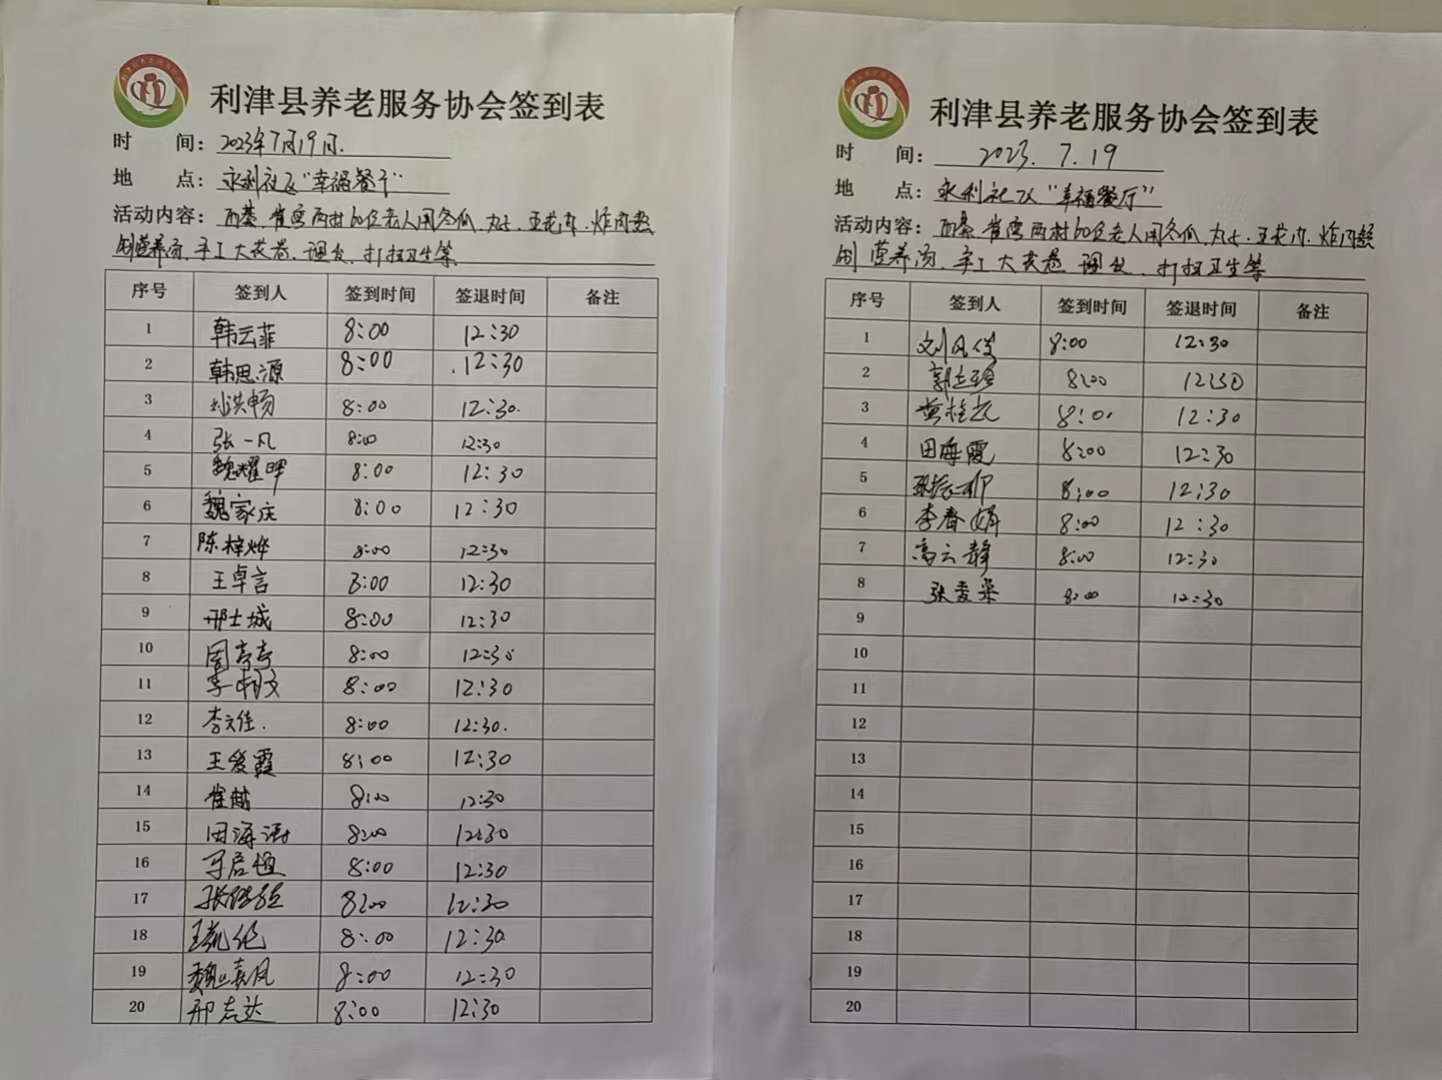 利津县养老服务协会签到表
时 间：2023年7月19日.
地 点：永利社区"幸福餐厅"
活动内容：西綦、崔宫两村60位老人用冬瓜、丸子、五花肉、炸肉熬
制营养汤、手工大花卷、调台、打扫卫生等
序号 签到人 签到时间 签退时间 备注
1 韩云菲 8:00 12:30
2 韩思源 8:00 12:30
3 刘洪畅 8:00 12:30.
4 张一凡 8:00 12:30
5 魏耀 8:00 12:30
6 魏家庆 8:00 12:30
7 陈梓烨 8:00 12:30
8 王卓言 8:00 12:30
9 邢士城 8:00 12:30
10 周亭亭 8:00 12:30
11 李 8:00 12:30
12 李文佳. 8:00 12:30.
13 王爱霞 8:00 12:30
14 崔越 8:00 12:30
15 田海涛 8:00 12:30
16 8:00 12:30
17 张 8:00 12:30
18 王凯伦 8:00 12:30
19 魏春凤 8:00 12:30
20 邢志达 8:00 12:30
利津县养老服务协会签到表
时 间：2023.7.19
地 点：永利社区"幸福餐厅"
活动内容：西綦、崔宫两村60位老人用冬瓜、丸子、五花肉、炸肉熬
制营养汤、手工大花卷、调台、打扫卫生等
序号 签到人 签到时间 签退时间 备注
1 刘凤俊 8:00 12:30
2 郭 8:00 12:30
3 黄桂 8:00 12:30
4 田海霞 8:00 12:30
5 张 8:00 12:30
6 李春娟 8:00 12:30
7 高云静 8:00 12:30
8 张爱 8:00 12:30
9
10
11
12
13
14
15
16
17
18
19
20